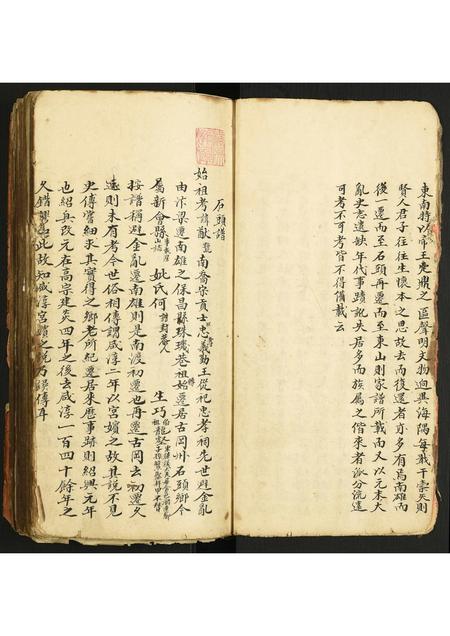 東南時以帝王定鼎之區聲明文物迥異海隅每戡干崇矢則
賢人君子往往生懷本之思故去而復還者亦多有焉南雄而
後一遷而至石頭再遷而至東山則家譜所載而又以元末大
亂史志遺缺年代事蹟訛失居多而族屬之偕來者派分流遠
可考不可考皆不得備載云
石頭譜
始祖考諱猷 南喬宋貢士忠義勤王從祀忠孝祠先世避金亂
由汴梁遷南雄之保昌縣珠璣巷祖始遷居古岡州石頭鄉今
屬新會縣 妣氏何 生巧
按譜稱避金亂遷南雄則是南渡初遷也再遷古岡去初遷久
遠則未有考今世俗相傳謂咸淳二年以宮嬪之故其說不見
史傳嘗細求其實得之鄉老所紀遷居來歷事跡則紹興元年
也紹興改元在高宗建炎四年之後去咸淳一百四十餘年之
久錯 此故知咸淳宮嬪之說乃誤傳耳